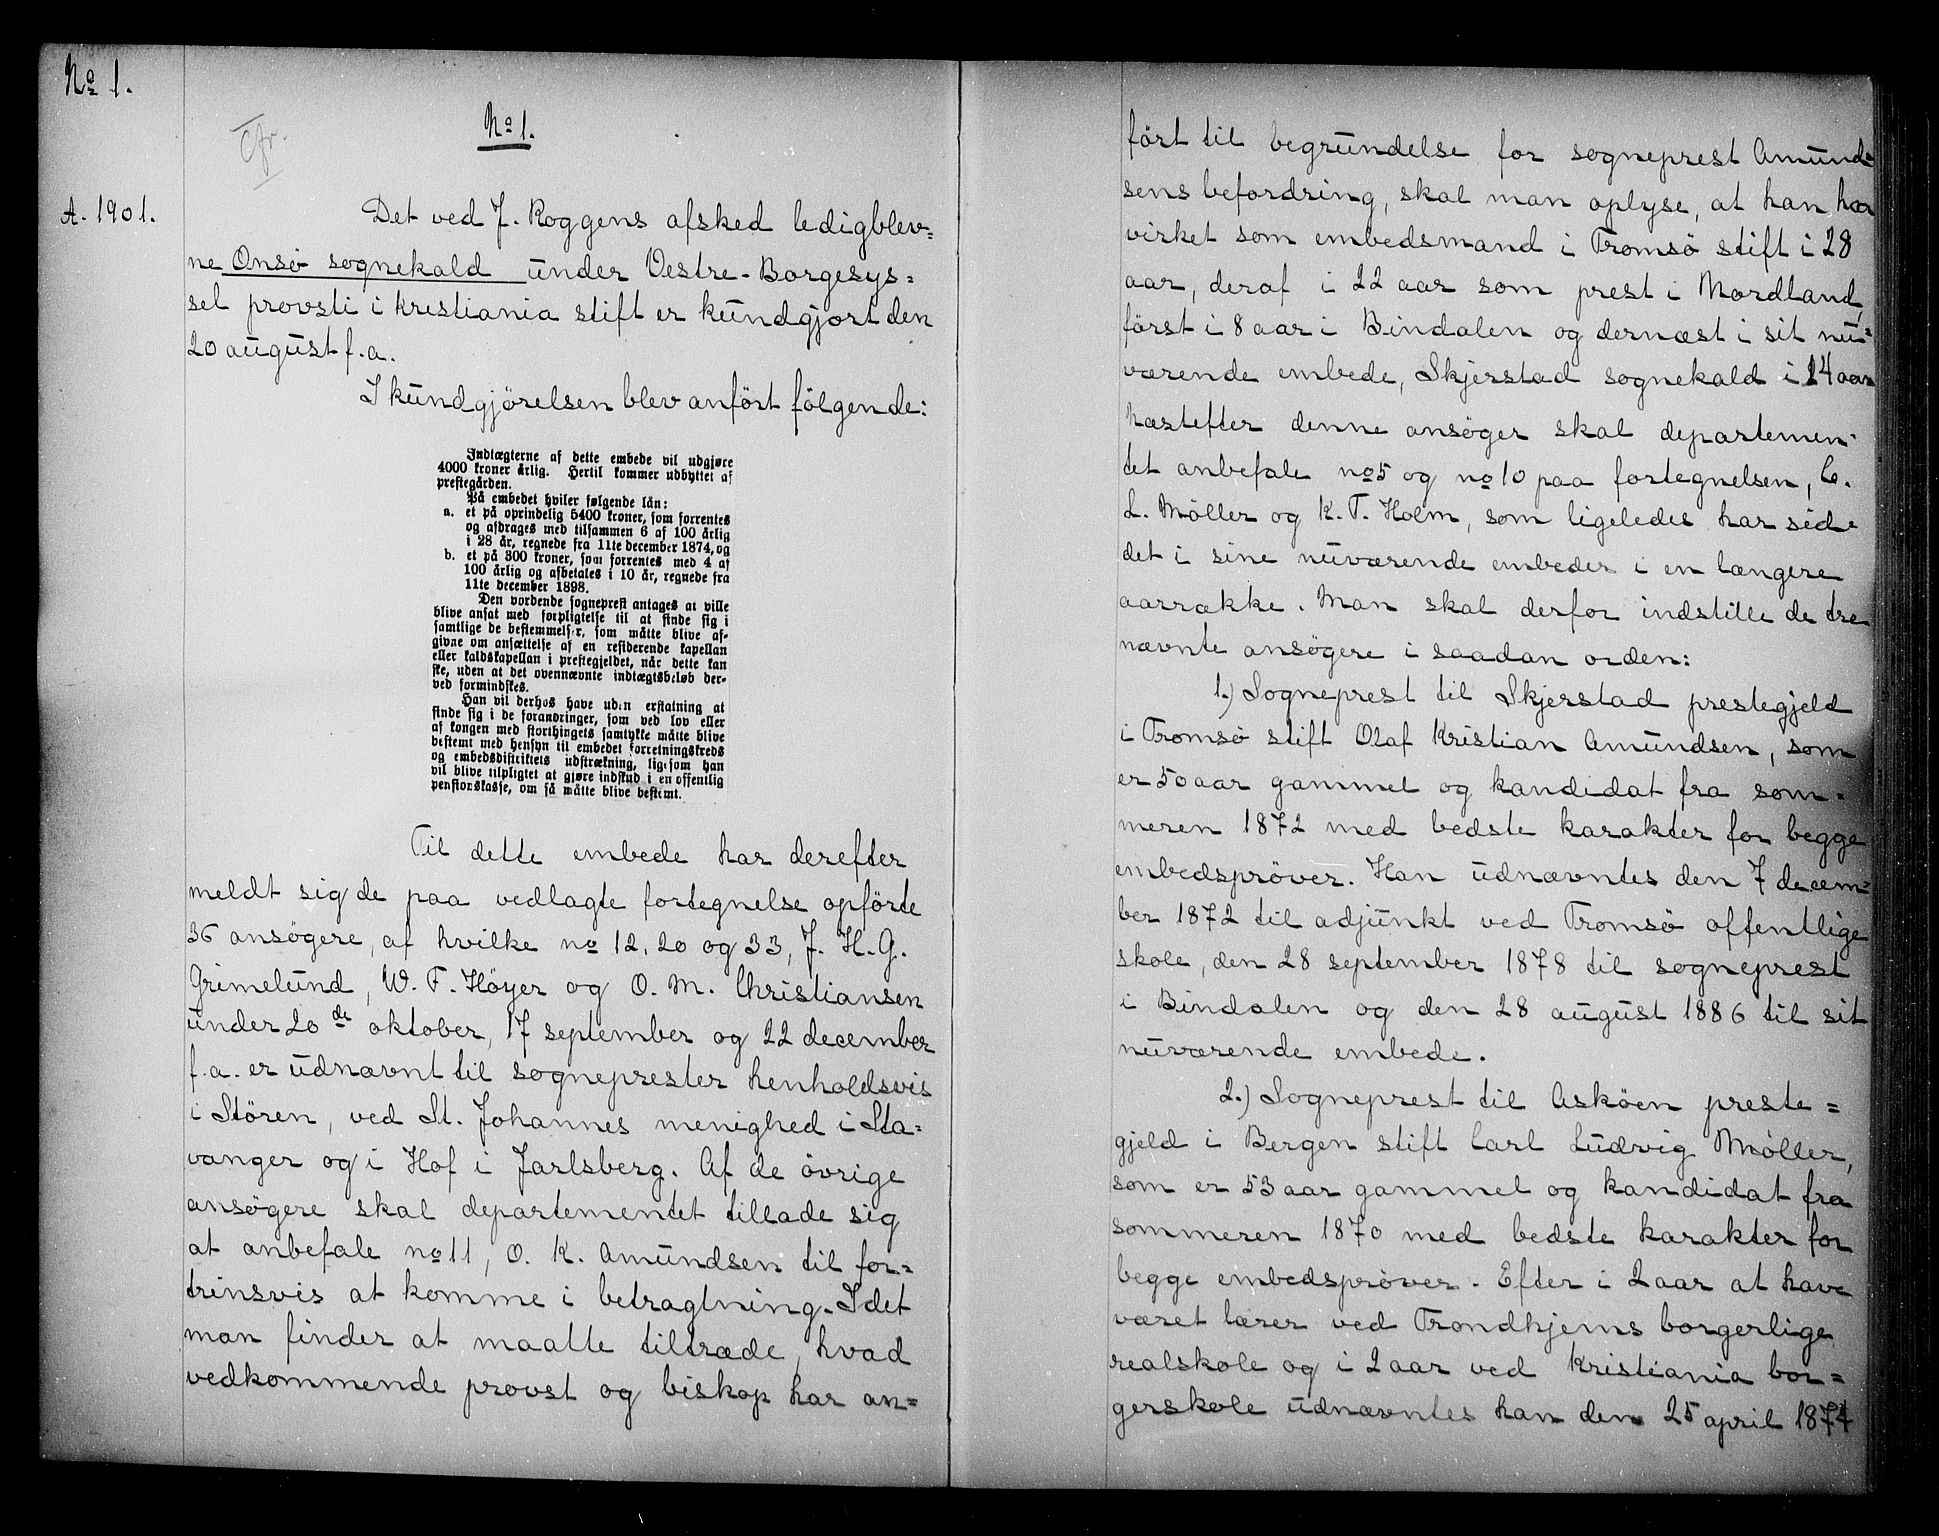 No 1.
Cfr.
No 1.
A. 1901.
Det ved J. Roggens afsked ledigblev=
ne Onsø sognekald under Vestre-Borgesys=
sel provsti i Kristiania stift er kundgjort den
20 august f.a.
I kundgjörelsen blev anfört fölgende:
Indtægterne af dette embede vil udgjøre
4000 kroner årlig. Hertil kommer udbyttet af
prestegården.
På embedet hviler følgende lån:
a. et på oprindelig 5400 kroner, som forrentes
og afdrages med tilsammen 6 af 100 årlig
i 28 år, regnede fra 11te december 1874, og
b. et på 300 kroner, som forrentes med 4 af
100 årlig og afbetales i 10 år, regnede fra
11te december 1898.
Den vordende sogneprest antages at ville
blive ansat med forpligtelse til at finde sig i
samtlige de bestemmelser, som måtte blive af-
givne om ansættelse af en residerende kapellan
eller kaldskapellan i prestegjeldet, når dette kan
ske, uden at det ovennævnte indtægtsbeløb der-
ved formindskes.
Han vil derhos have uden erstatning at
finde sig i de forandringer, som ved lov eller
af kongen med storthingets samtykke måtte blive
bestemt med hensyn til embedet forretningskreds
og embedsdistriktets udstrækning, ligesom han
vil blive tilpligtet at gjøre indskud i en offentlig
pensionskasse, om så måtte blive bestemt.
Til dette embede har derefter
meldt sig de paa vedlagte fortegnelse opförte
36 ansögere, af hvilke no 12, 20 og 33, J. H. G.
Grimelund, W. F. Höyer og O. M. Christiansen
under 20de oktober, 17 september og 22 december
f.a. er udnævnt til sogneprester henholdsvis
i Stören, ved St. Johannes menighed i Sta=
vanger og i Hof i Jarlsberg. Af de övrige
ansøgere skal departementet tillade sig
at anbefale no 11, O. K. Amundsen til for=
trinsvis at komme i betragtning. Idet
man finder at maatte tiltræde, hvad
vedkommende provst og biskop har an=
fört til begrundelse for sogneprest Amund=
sens befordring, skal man oplyse, at han har
virket som embedsmand i Tromsö stift i 28
aar, deraf i 22 aar som prest i Nordland,
först i 8 aar i Bindalen og dernæst i sit nu=
værende embede, Skjerstad sognekald i 14 aar
Næstefter denne ansøger skal departemen=
tet anbefale no 5 og no 10 paa fortegnelsen, C.
L. Möller og K. T. Holm, som ligeledes har sid=
det i sine nuværende embeder i en længere
aarrække. Man skal derfor indstille de tre
nævnte ansögere i saadan orden:
1.) Sogneprest til Skjerstad prestegjeld
i Tromsö stift Olaf Kristian Amundsen, som
er 50 aar gammel og kandidat fra som=
meren 1872 med bedste karakter for begge
embedspröver. Han udnævntes den 7 decem=
ber 1872 til adjunkt ved Tromsö offentlige
skole, den 28 september 1878 til sogneprest
i Bindalen og den 28 august 1886 til sit
nuværende embede.
2.) Sogneprest til Asköen preste=
gjeld i Bergen stift Carl Ludvig Möller,
som er 53 aar gammel og kandidat fra
sommeren 1870 med bedste karakter for
begge embedspröver. Efter i 2 aar at have
været lærer ved Trondhjems borgerlige
realskole og i 2 aar ved Kristiania bor=
gerskole udnævntes han den 25 april 1874